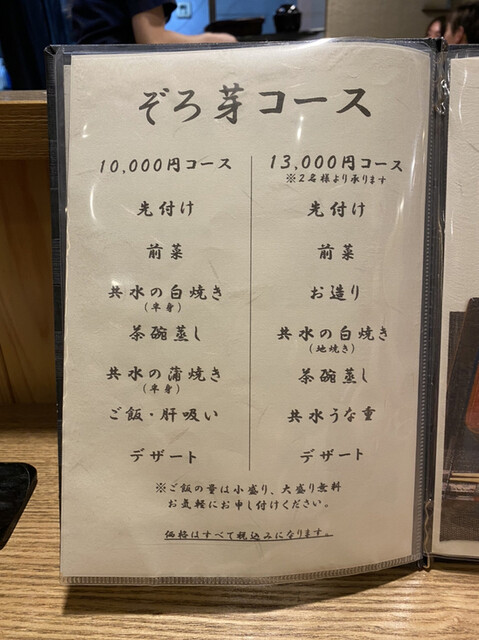 ぞろ芽コース
10,000円コース
先付け
前菜
共水の白焼き
(半身)
茶碗蒸し
共水の蒲焼き
(半身)
ご飯・肝吸い
デザート
13,000円コース
※2名様より承ります
先付け
前菜
お造り
共水の白焼き
(地焼き)
茶碗蒸し
共水うな重
デザート
※ご飯の量は小盛り、大盛り無料
お気軽にお申し付けください。
価格はすべて税込みになります。